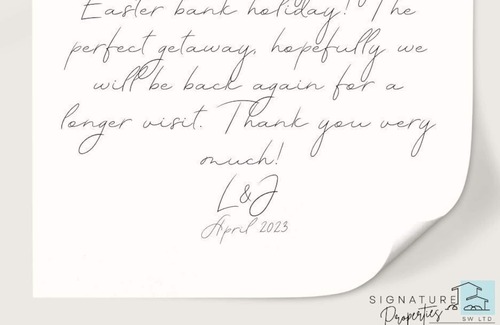 Easter bank holiday! The
perfect getaway, hopefully we
will be back again for a
longer visit. Thank you very
much!
L&J
April 2023
SIGNATURE
Properties
SW LTD